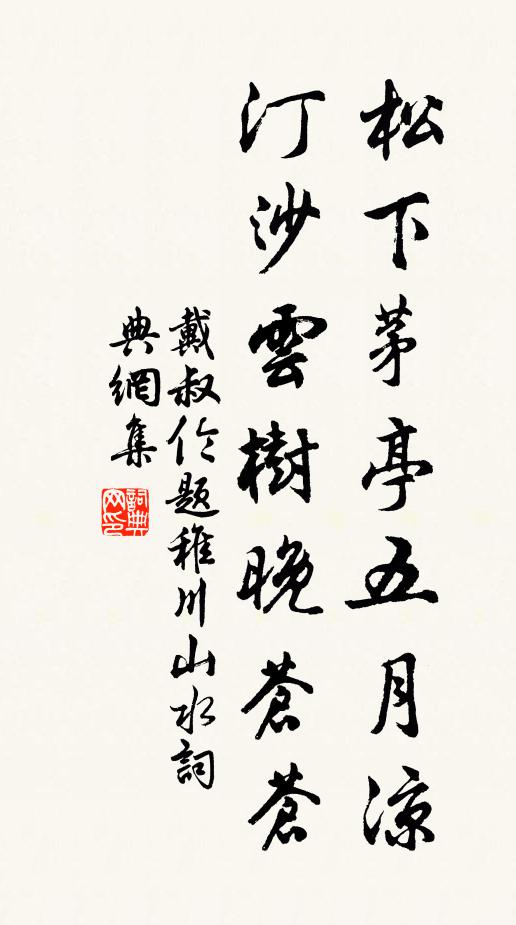 松下茅亭五月涼
汀沙雲樹晚蒼蒼
戴叔伦題稚川山水詞
典網集
詞典
网印